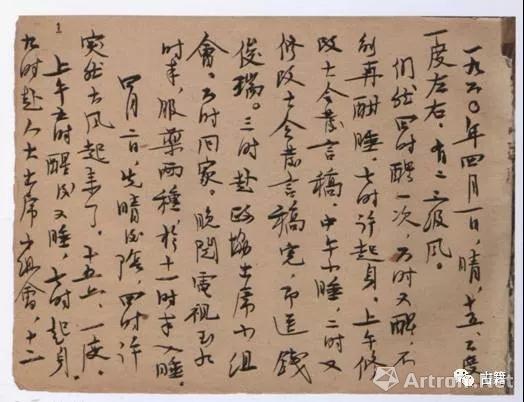 1
一九六〇年四月一日,晴,十五、六度
一度左右,有二三级风。
仍然四时醒一次,六时又醒,不
刻再酣睡,七时许起身。上午修
改大会发言稿,中午小睡,二时又
修改大会发言稿完而送钱
俊瑞。三时赴政协出席小组
会,六时回家。晚阅电视至九
时半,服药两种于十一时半入睡。
四月二日,先晴后阴,四时许
突然大风起来了。十五上、一度。
上午五时醒后又睡,七时起身。
九时赴人大出席小组会,十二
古籍
Artron.Net